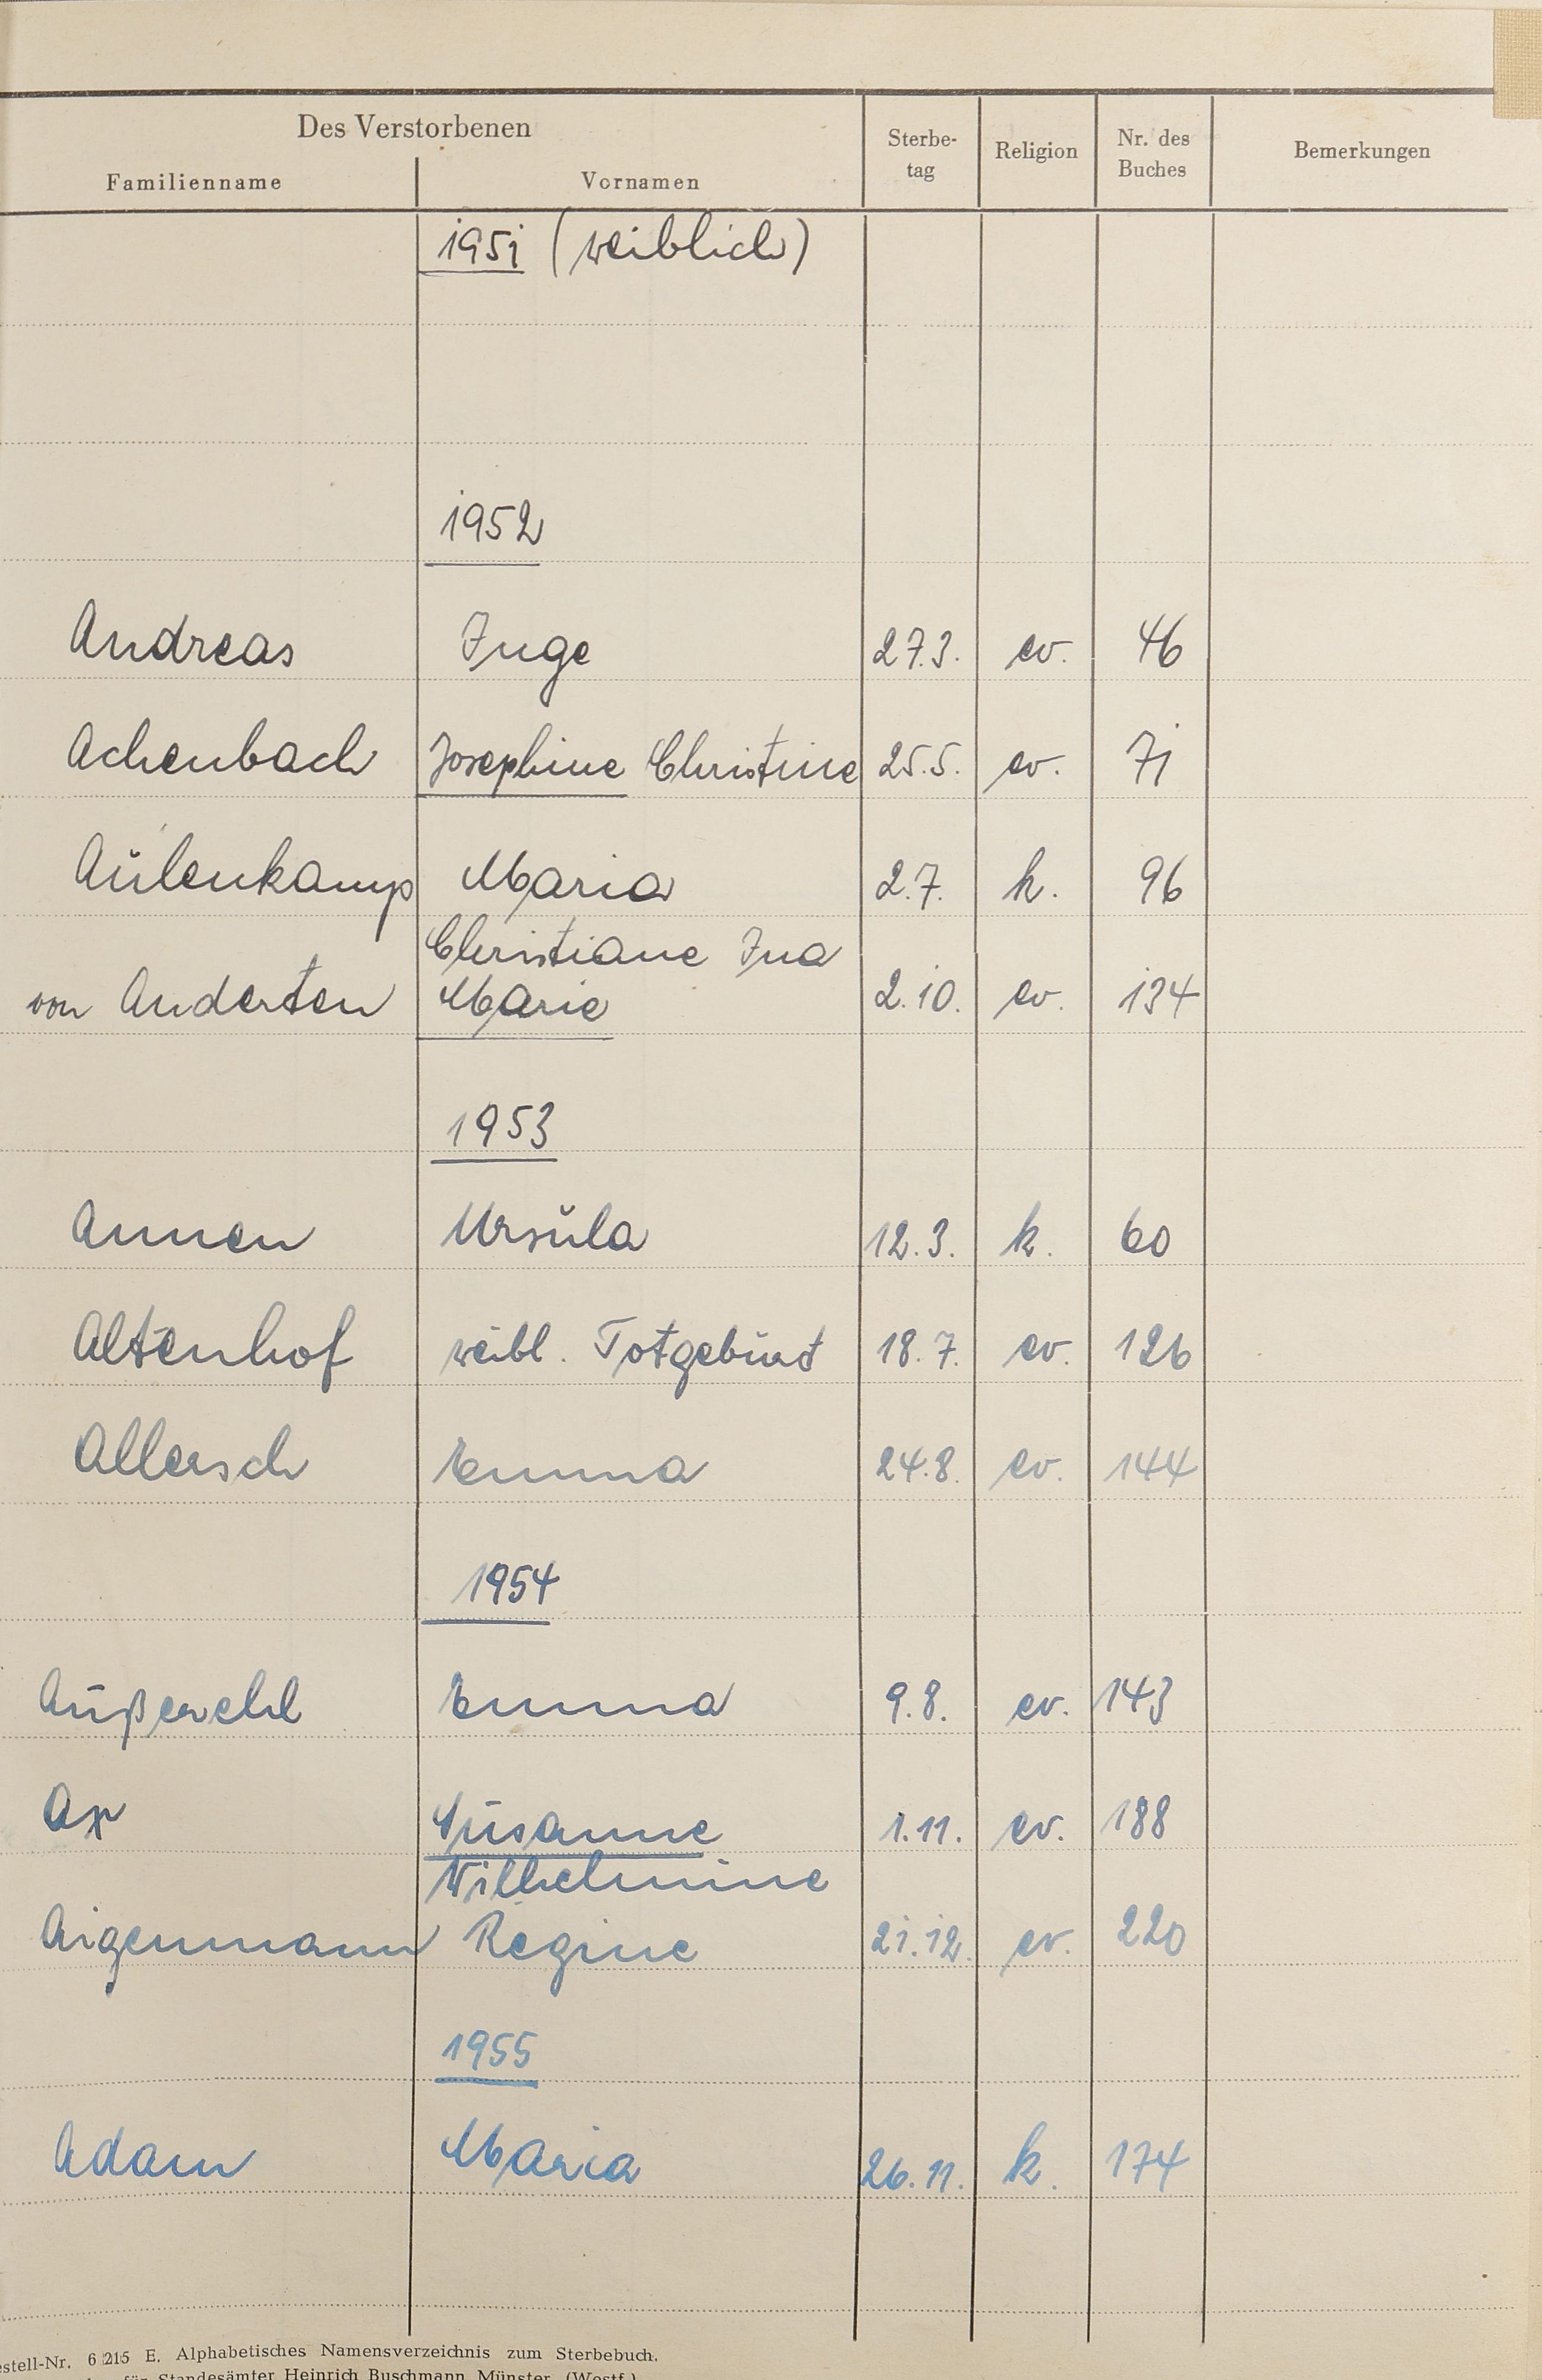 Des Verstorbenen
Familienname Vornamen Sterbe-tag Religion Nr. des Buches Bemerkungen
1951 (weiblich)
1952
Andreas Inge 27.3. ev. 46
Achenbach Josephine Christine 25.5. ev. 71
Aulenkamp Maria 2.7. k. 96
Christiane Ina
von Anderten Marie 2.10. ev. 134
1953
Annen Ursula 12.3. k. 60
Altenhof weibl. Totgeburt 18.7. ev. 126
Allersch Emma 24.8. ev. 144
1954
Außerehl Emma 9.8. ev. 143
Ax Susanne 1.11. ev. 188
Wilhelmine
Aigenmann Regine 21.12. ev. 220
1955
Adam Maria 26.11. k. 174
estell-Nr. 6 215 E. Alphabetisches Namensverzeichnis zum Sterbebuch.
für Standesämter Heinrich Buschmann Münster (Westf.)